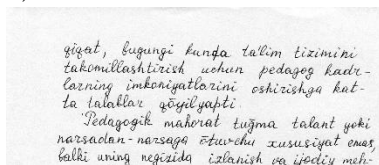 qiqat, bugungi kunda ta'lim tizimini
takomillashtirish uchun pedagog kadr-
larning imkoniyatlarini oshirishga kat-
ta talablar qōyilyapti.
Pedagogik mahorat tuğma talant yoki
narsadan-narsaga ōtuvchi xususiyat emas,
balki uning negizida izlanish va ijodiy meh-